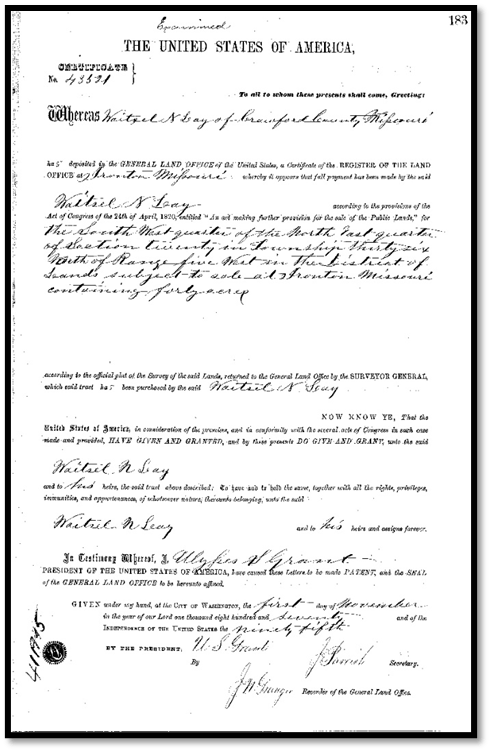 Examined
183
THE UNITED STATES OF AMERICA,
CERTIFICATE
No. 43521
To all to whom these presents shall come, Greeting:
Whereas Waitsel N Leay of Crawford County Missouri
has deposited in the GENERAL LAND OFFICE of the United States, a Certificate of the REGISTER OF THE LAND
OFFICE at Ironton Missouri whereby it appears that full payment has been made by the said
Waitsel N Leay according to the provisions of the
Act of Congress of the 24th of April, 1820, entitled "An act making further provision for the sale of the Public Lands," for
the South West quarter of the North East quarter
of Section twenty in Township thirty six
North of Range five West in the District of
Lands subject to sale at Ironton Missouri
containing forty acres
according to the official plat of the Survey of the said Lands, returned to the General Land Office by the SURVEYOR GENERAL,
which said tract has been purchased by the said Waitsel N Leay
NOW KNOW YE, That the
United States of America, in consideration of the premises, and in conformity with the several acts of Congress in such case
made and provided, HAVE GIVEN AND GRANTED, and by these presents DO GIVE AND GRANT, unto the said
Waitsel N Leay
and to his heirs, the said tract above described: To have and to hold the same, together with all the rights, privileges,
immunities, and appurtenances, of whatsoever nature, thereunto belonging, unto the said
Waitsel N Leay and to his heirs and assigns forever.
In Testimony Whereof, I, Ulysses S Grant
PRESIDENT OF THE UNITED STATES OF AMERICA, have caused these Letters to be made PATENT, and the SEAL
of the GENERAL LAND OFFICE to be hereunto affixed.
GIVEN under my hand, at the CITY OF WASHINGTON, the first day of November
in the year of our Lord one thousand eight hundred and seventy and of the
INDEPENDENCE OF THE UNITED STATES the ninety fifth
BY THE PRESIDENT: U S Grant
By J Parrish Secretary.
J N Granger Recorder of the General Land Office.